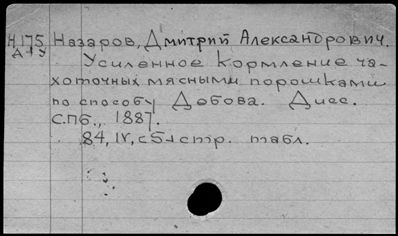 Н175 Назаров, Дмитрий Александрович.
Д-13
Усиленное кормление ча-
хоточных мясными порошками
по способу Дебова. Дисс.
С.Пб., 1887.
84, IV, с 5-1 стр. табл.